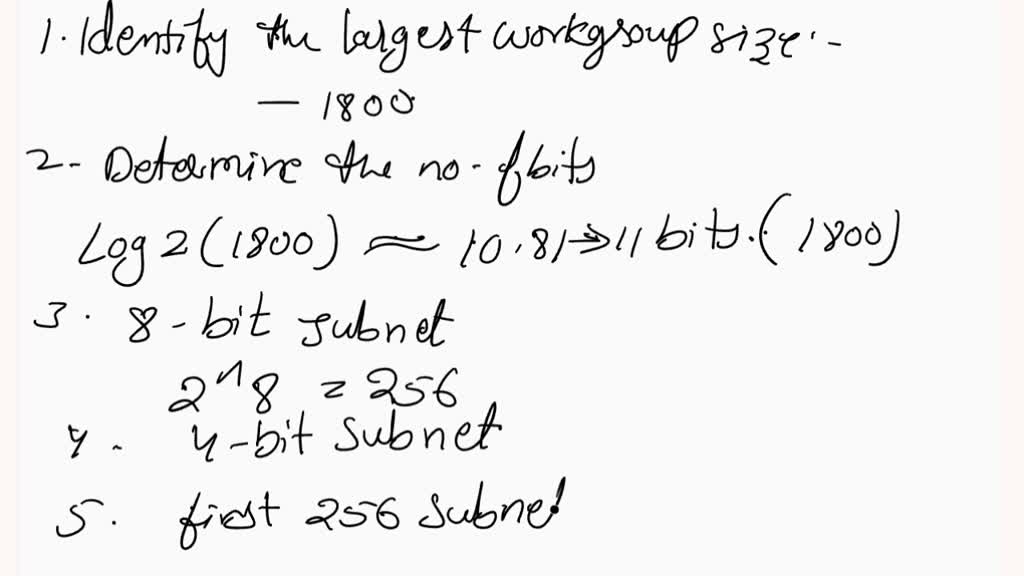 1. Identify the largest workgroup size:-
— 1800
2- Determine the no- of bits
Log 2 (1800) ≈ 10.81→11 bits. (1800)
3. 8-bit subnet
2^8 = 256
4. 4-bit subnet
5. first 256 subnet